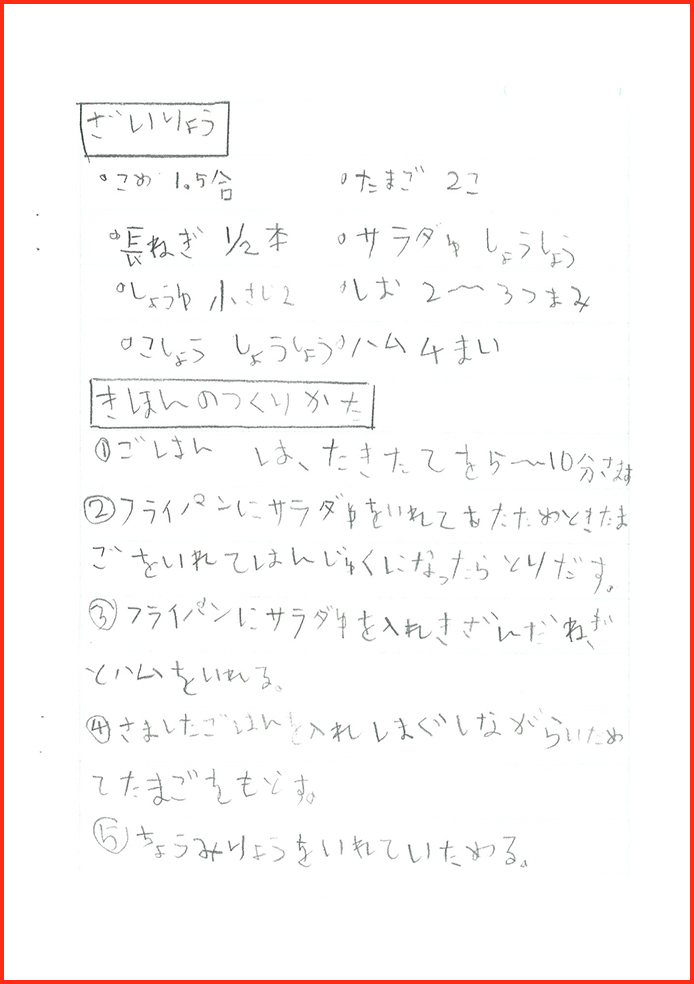 ざいりょう
・こめ 1.5合 ・たまご 2こ
・長ねぎ 1/2本 ・サラダゆ しょうしょう
・しょうゆ 小さじ2 ・しお 2〜3つまみ
・こしょう しょうしょう ・ハム 4まい
きほんのつくりかた
①ごはん は、たきたてを5〜10分さます
②フライパンにサラダゆをいれてあたためときたま
ごをいれてはんじゅくになったらとりだす。
③フライパンにサラダゆを入れきざんだねぎ
とハムをいれる。
④さましたごはんを入れしまぐしながらいため
てたまごをもどす。
⑤ちょうみりょうをいれていためる。